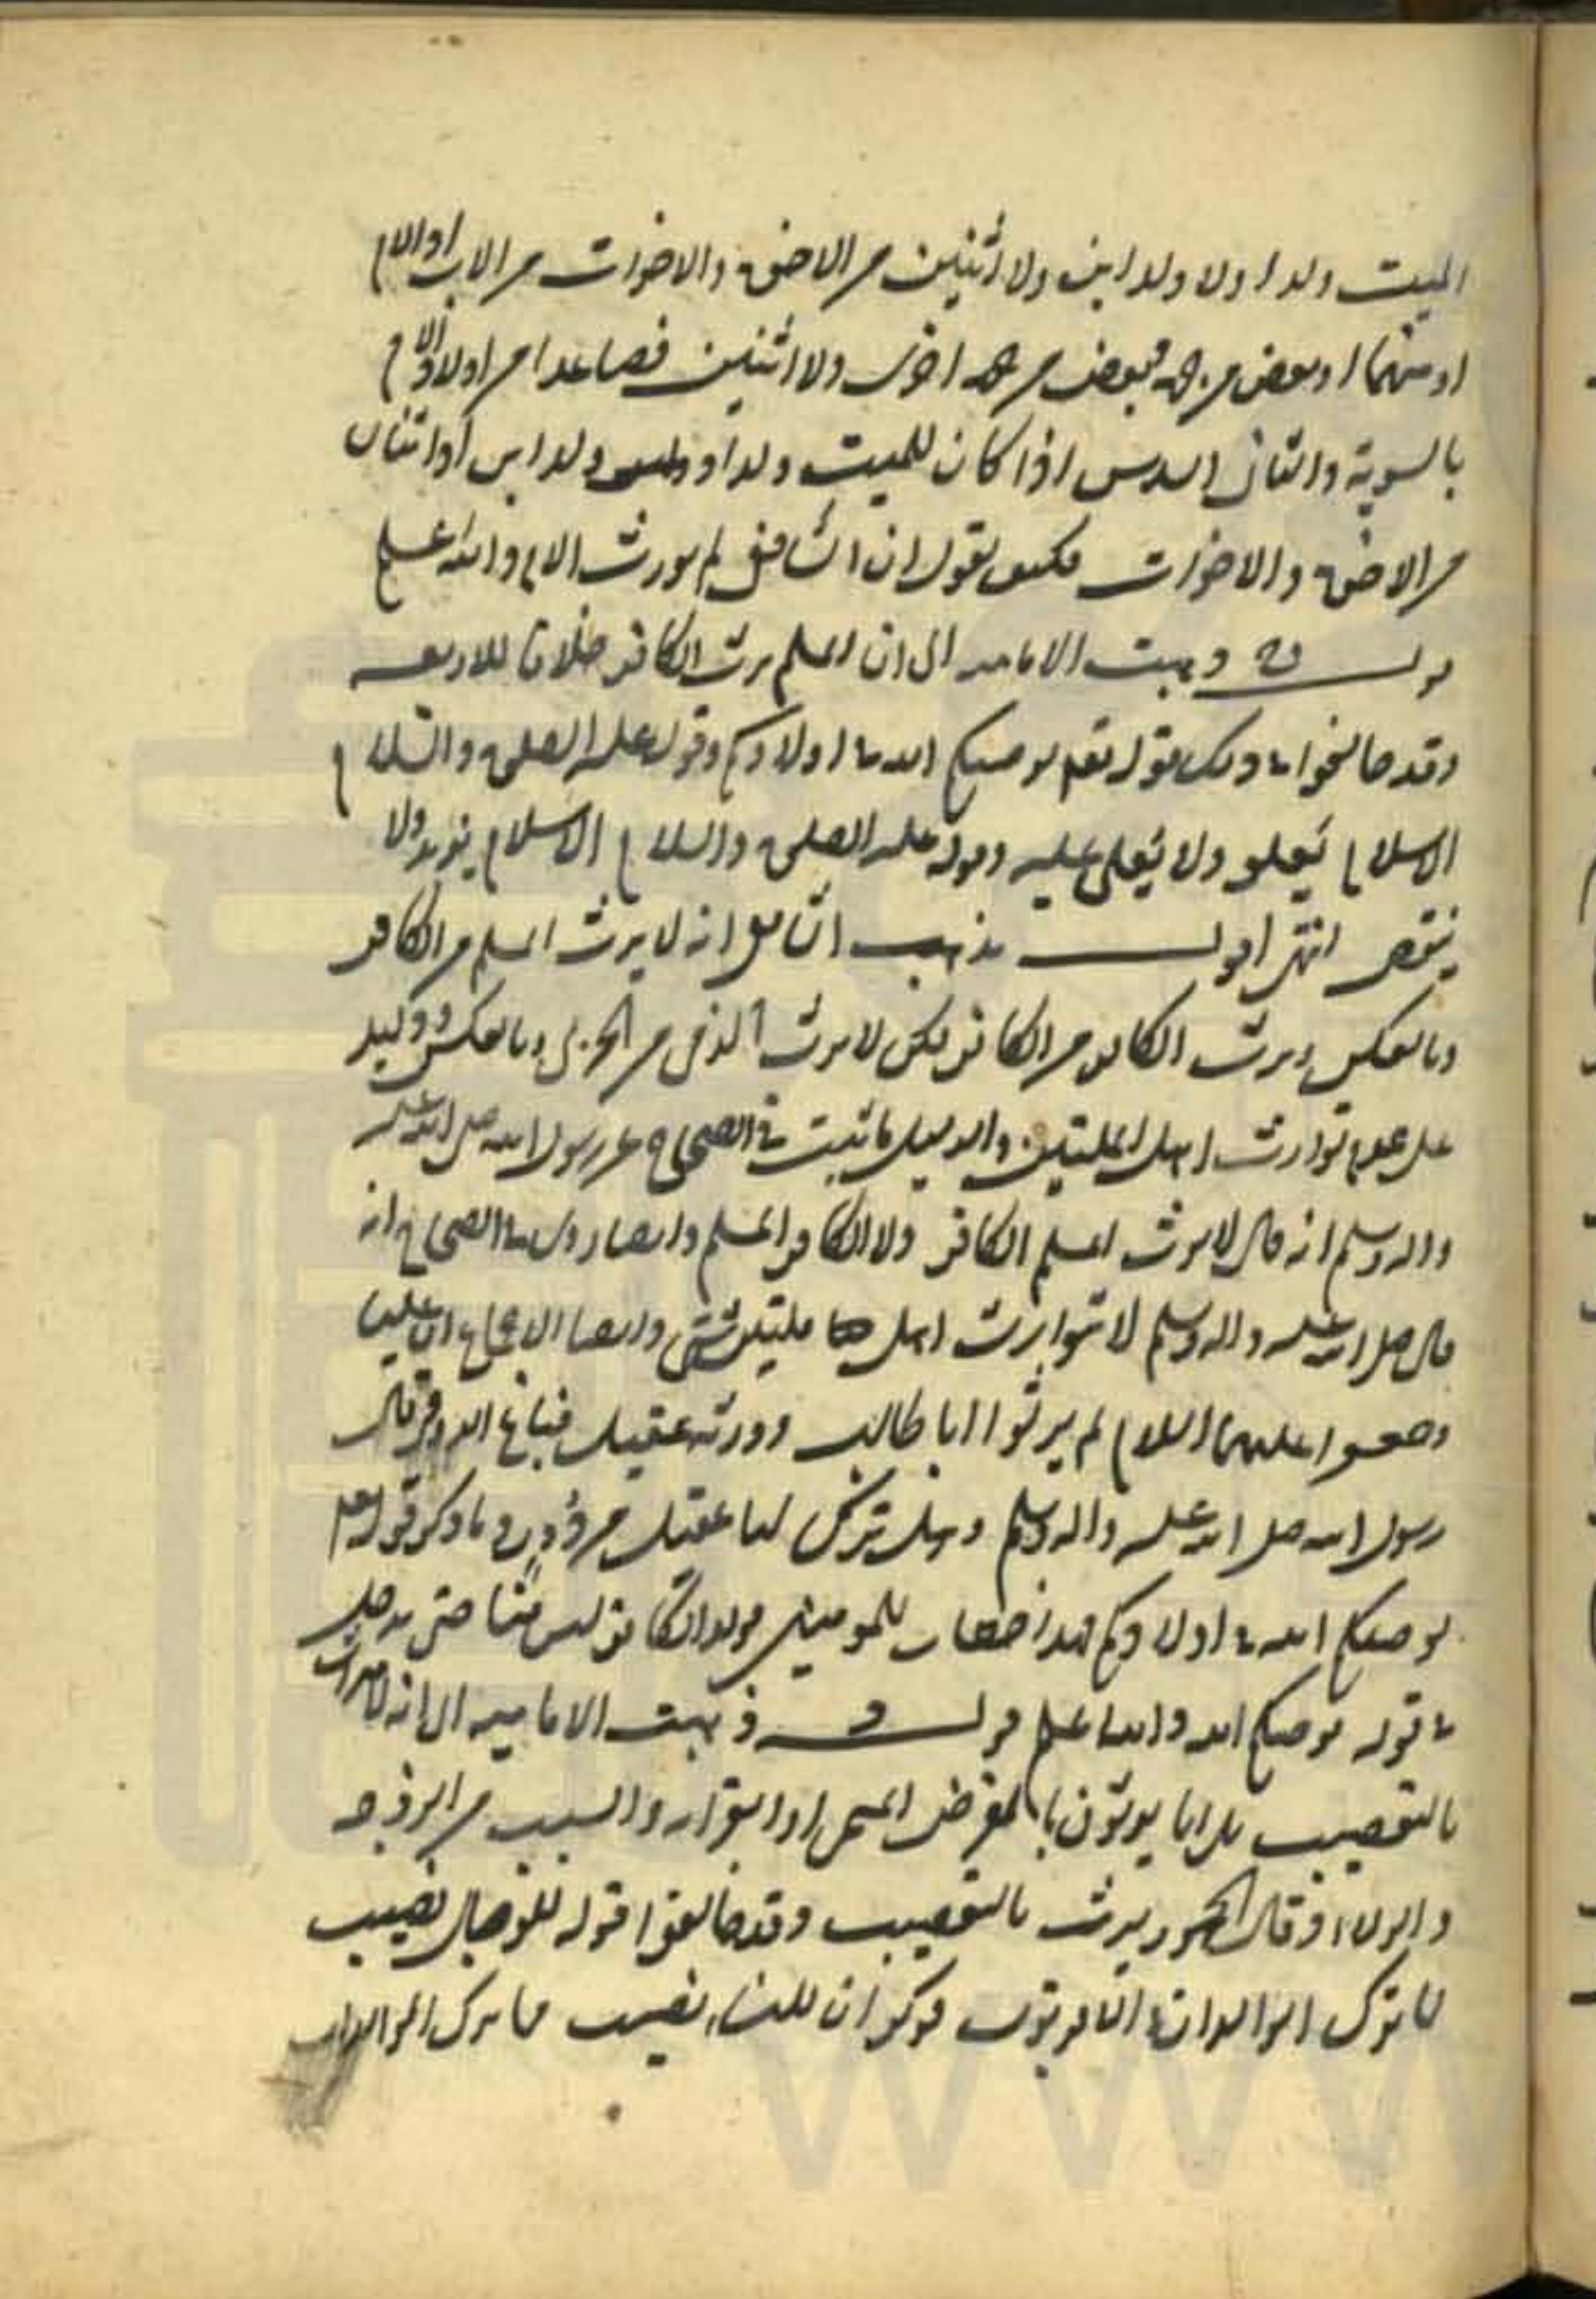 الميت ولدا ولا ولد ابن ولا اثنين من الاخوة والاخوات من الاب او الام
او منهما او بعض من جهة وبعض من جهة اخرى ولا اثنين فصاعدا من اولاد الام
بالسوية والثاني السدس اذا كان للميت ولد او ولد ابن او اثنان
من الاخوة والاخوات فكيف يقول ان الشافعي لم يورث الام والله اعلم
قوله ذهبت الامامية الى ان المسلم يرث الكافر خلافا للاربعة
وقد خالفوا في ذلك قوله تعم يوصيكم الله في اولادكم وقوله عليه الصلوة والسلام
الاسلام يعلو ولا يعلى عليه وقوله عليه الصلوة والسلام الاسلام يزيد ولا
ينقص انتهى اقول مذهب الشافعي انه لا يرث المسلم من الكافر
وبالعكس ويرث الكافر من الكافر لكن لا يرث الذمي من الحربي وبالعكس
على عدم توارث اهل الملتين والدليل ما ثبت في الصحاح عن رسول الله صلى الله عليه
واله وسلم انه قال لا يرث المسلم الكافر ولا الكافر المسلم وايضا روي في الصحاح انه
قال صلى الله عليه واله وسلم لا توارث اهل ملتين شتى وايضا الاجماع ان عليا
وجعفرا عليهما السلام لم يرثوا ابا طالب وورثه عقيل فباع الدور فقال
رسول الله صلى الله عليه واله وسلم وهل ترك لنا عقيل من دور وما ذكر قوله تعم
يوصيكم الله في اولادكم فهذا خطاب للمومنين فولد الكافر ليس منا حتى يدخل
في قوله يوصيكم الله والله اعلم قوله ذهبت الامامية الى انه لا ميراث
بالتعصيب بل انما يورثون بالفرض المسمى او القرابة والسبب من الزوجية
والولاء وقال الجمهور يرث بالتعصيب وقد خالفوا قوله للرجال نصيب
مما ترك الوالدان والاقربون فذكر ان للنساء نصيب مما ترك الوالدان